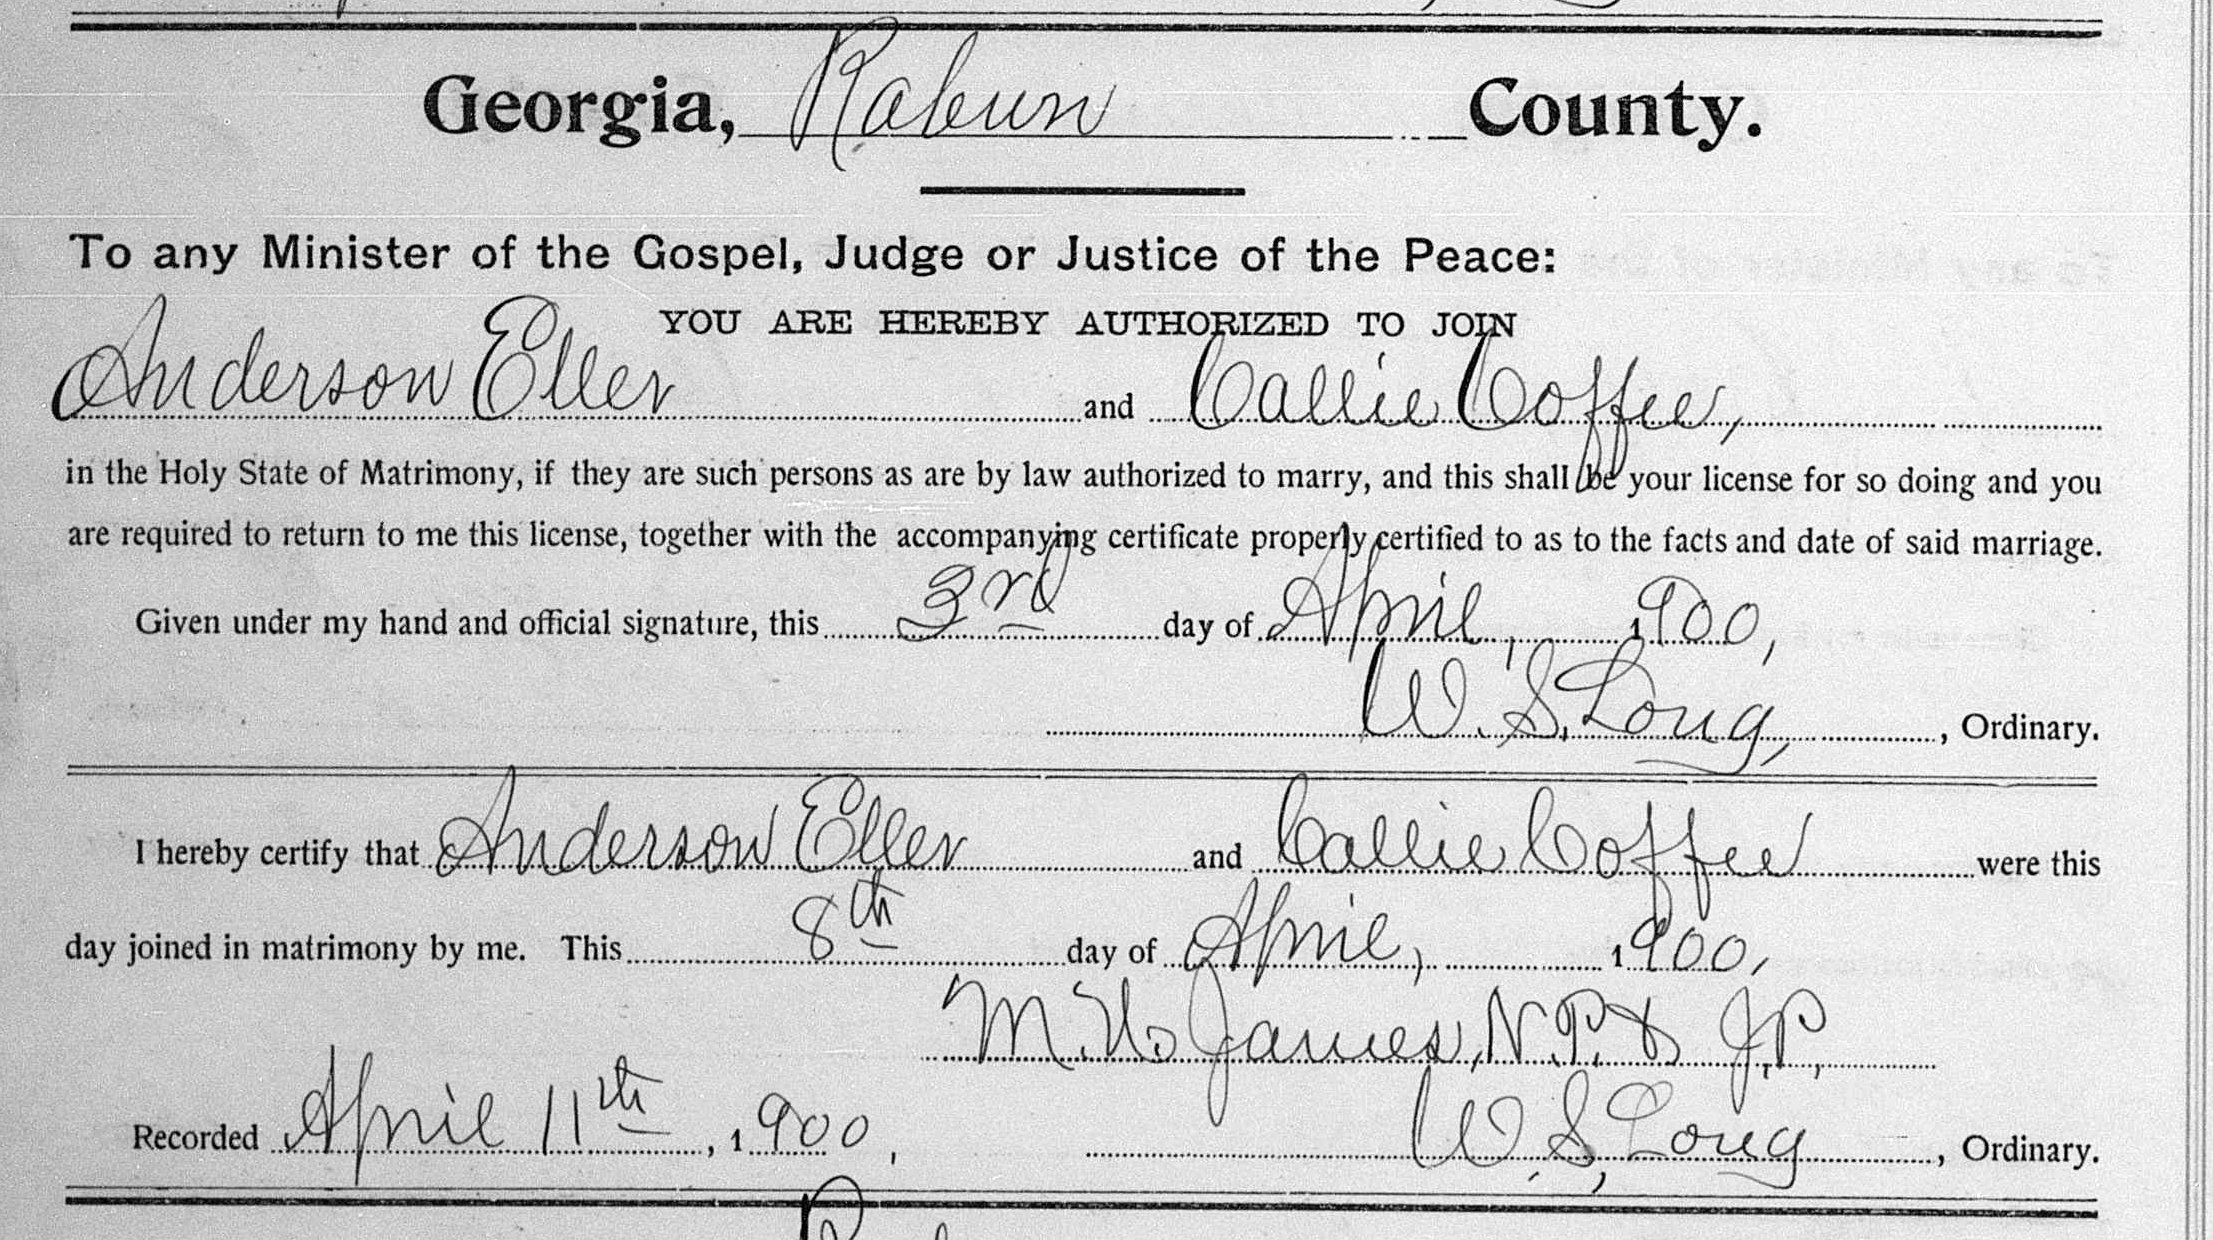 Georgia, Rabun County.
To any Minister of the Gospel, Judge or Justice of the Peace:
YOU ARE HEREBY AUTHORIZED TO JOIN
Anderson Eller and Callie Coffee,
in the Holy State of Matrimony, if they are such persons as are by law authorized to marry, and this shall be your license for so doing and you
are required to return to me this license, together with the accompanying certificate properly certified to as to the facts and date of said marriage.
Given under my hand and official signature, this 3rd day of April, 1900,
W. S. Long, , Ordinary.
I hereby certify that Anderson Eller and Callie Coffee were this
day joined in matrimony by me. This 8th day of April, 1900,
M. James, N.P. & J.P.
Recorded April 11th, 1900, W. S. Long, Ordinary.